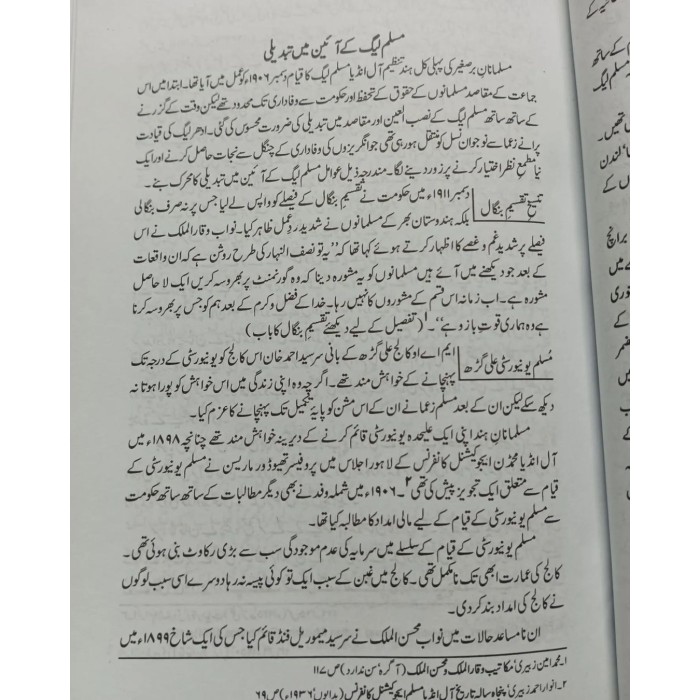 مسلم لیگ کے آئین میں تبدیلی
مسلمانانِ برصغیر کی پہلی کل ہند تنظیم آل انڈیا مسلم لیگ کا قیام دسمبر ۱۹۰۶ء کو عمل میں آیا تھا۔ ابتدا میں اس
جماعت کے مقاصد مسلمانوں کے حقوق کے تحفظ اور حکومت سے وفاداری تک محدود تھے لیکن وقت کے گزرنے
کے ساتھ ساتھ مسلم لیگ کے نصب العین اور مقاصد میں تبدیلی کی ضرورت محسوس کی گئی۔ ادھر لیگ کی قیادت
پرانے زعما سے نوجوان نسل کو منتقل ہو رہی تھی جو انگریزوں کی وفاداری کے چنگل سے نجات حاصل کرنے اور ایک
نیا مطمع نظر اختیار کرنے پر زور دینے لگا۔ مندرجہ ذیل عوامل مسلم لیگ کے آئین میں تبدیلی کا محرک بنے۔
تنسیخ تقسیم بنگال دسمبر ۱۹۱۱ء میں حکومت نے تقسیم بنگال کے فیصلے کو واپس لے لیا جس پر نہ صرف بنگالی
بلکہ ہندوستان بھر کے مسلمانوں نے شدید ردِعمل ظاہر کیا۔ نواب وقار الملک نے اس
فیصلے پر شدید غم و غصے کا اظہار کرتے ہوئے کہا تھا کہ ”یہ تو نصف النہار کی طرح روشن ہے کہ ان واقعات
کے بعد جو دیکھنے میں آئے ہیں مسلمانوں کو یہ مشورہ دینا کہ وہ گورنمنٹ پر بھروسہ کریں ایک لا حاصل
مشورہ ہے۔ اب زمانہ اس قسم کے مشوروں کا نہیں رہا۔ خدا کے فضل و کرم کے بعد ہم کو جس پر بھروسہ کرنا
ہے وہ ہماری قوتِ بازو ہے“۔۱ (تفصیل کے لیے دیکھئے تقسیم بنگال کا باب)
مُسلم یونیورسٹی علی گڑھ ایم اے او کالج علی گڑھ کے بانی سرسید احمد خان اس کالج کو یونیورسٹی کے درجہ تک
پہنچانے کے خواہش مند تھے۔ اگرچہ وہ اپنی زندگی میں اس خواہش کو پورا ہوتا نہ
دیکھ سکے لیکن ان کے بعد مسلم زعما نے ان کے اس مشن کو پایۂ تکمیل تک پہنچانے کا عزم کیا۔
مسلمانانِ ہند اپنی ایک علیحدہ یونیورسٹی قائم کرنے کے دیرینہ خواہش مند تھے چنانچہ ۱۸۹۸ء میں
آل انڈیا محمڈن ایجوکیشنل کانفرنس کے لاہور اجلاس میں پروفیسر تھیوڈور ماریسن نے مسلم یونیورسٹی کے
قیام سے متعلق ایک تجویز پیش کی تھی۲۔ ۱۹۰۶ء میں شملہ وفد نے بھی دیگر مطالبات کے ساتھ ساتھ حکومت
سے مسلم یونیورسٹی کے قیام کے لیے مالی امداد کا مطالبہ کیا تھا۔
مسلم یونیورسٹی کے قیام کے سلسلے میں سرمایہ کی عدم موجودگی سب سے بڑی رکاوٹ بنی ہوئی تھی۔
کالج کی عمارت ابھی تک نامکمل تھی۔ کالج میں غبن کے سبب ایک تو کوئی پیسہ نہ رہا دوسرے اسی سبب لوگوں
نے کالج کی امداد بند کر دی۔
ان نامساعد حالات میں نواب محسن الملک نے سرسید میموریل فنڈ قائم کیا جس کی ایک شاخ ۱۸۹۹ء میں
۱۔ محمد امین زبیری؛ مکاتیب وقار الملک و محسن الملک (آگرہ سن ندارد) ص ۱۱۷
۲۔ انوار احمد زبیری؛ پنجاہ سالہ تاریخ آل انڈیا مسلم ایجوکیشنل کانفرنس (بدایوں؛ ۱۹۳۶ء) ص ۶۹